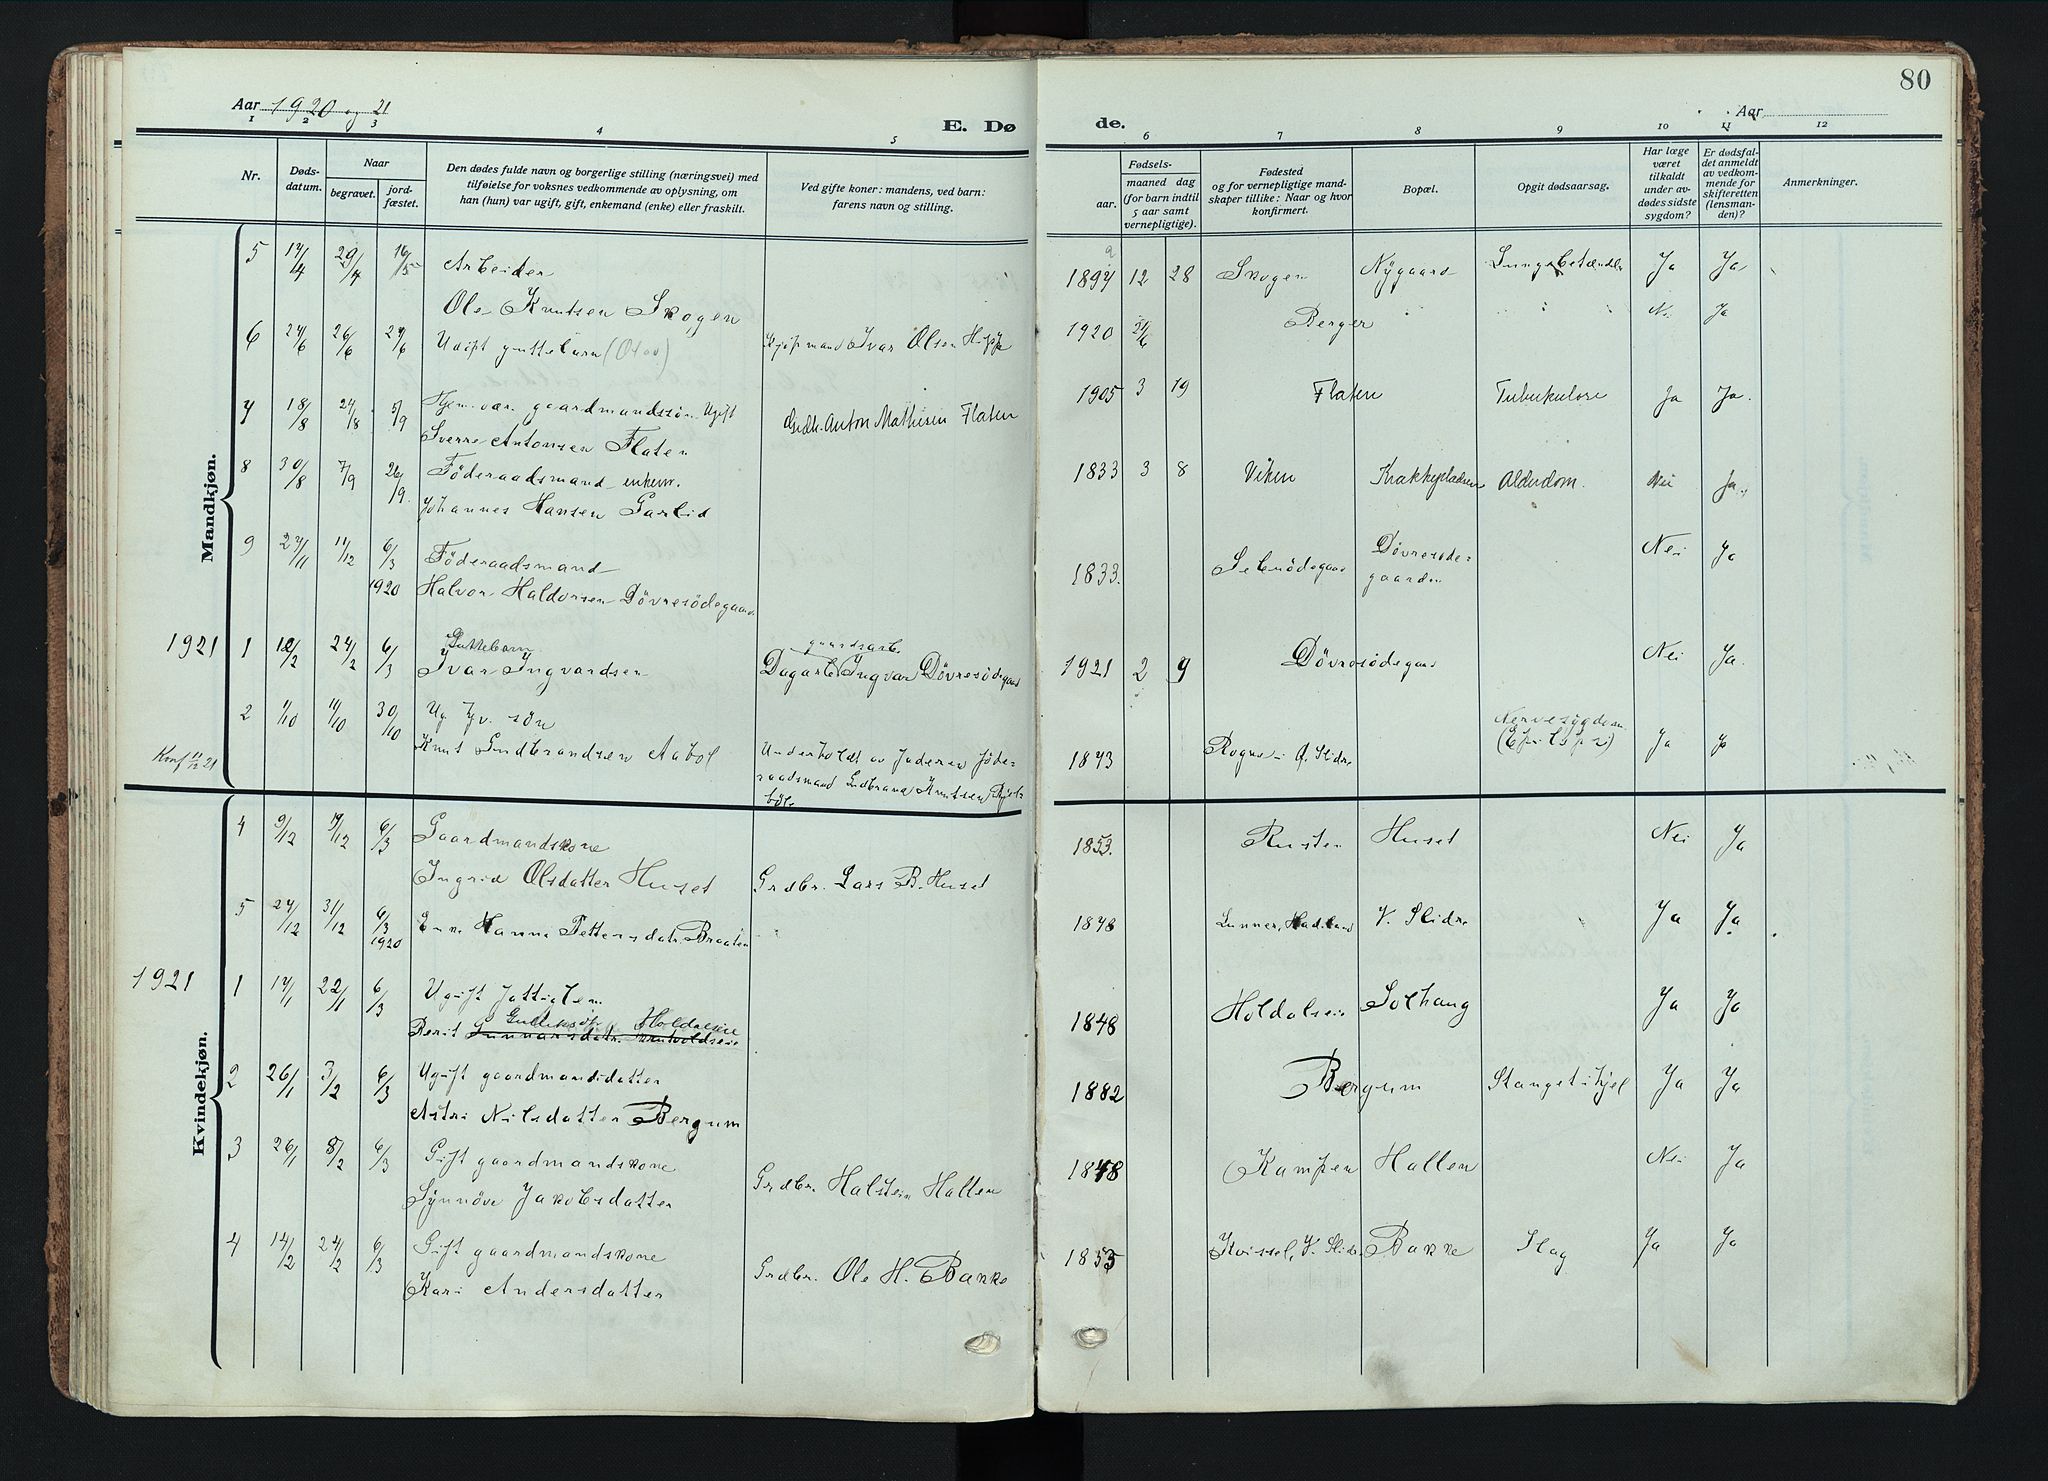 Aar 1920 og 21
E. Dø
de.
Aar
80
1 2 3 4 5 6 7 8 9 10 11 12
Nr.
Døds-
datum.
Naar
begravet.
jord-
fæstet.
Den dødes fulde navn og borgerlige stilling (næringsvei) med
tilføielse for voksnes vedkommende av oplysning, om
han (hun) var ugift, gift, enkemand (enke) eller fraskilt.
Ved gifte koner: mandens, ved barn:
farens navn og stilling.
Fødsels-
aar.
maaned dag
(for barn indtil
5 aar samt
vernepligtige).
Fødested
og for vernepligtige mand-
skaper tillike: Naar og hvor
konfirmert.
Bopæl.
Opgit dødsaarsag.
Har læge
været
tilkaldt
under av-
dødes sidste
sygdom?
Er dødsfal-
det anmeldt
av vedkom-
mende for
skifteretten
(lensman-
den)?
Anmerkninger.
Mandkjøn.
5 17/4 29/4 16/5 Arbeider 1897 12 28 Skogen Nygaard Ja Ja
Ole Knutsen Skogen
6 24/6 26/6 Udøpt guttebarn (Olav) Kjøpmand Ivar Olsen 1920 Berger Nei Ja
7 18/8 24/8 5/9 Hjemvær. gaardmandssøn. Ugift Grdbr. Anton Mathisen Flaten 1905 3 19 Flaten Tuberkulose Ja Ja.
Sverre Antonsen Flaten
8 30/8 7/9 26/9. Föderaadsmand enkem. 1833 3 8 Viken Krakkepladsen Alderdom. Nei Ja.
Johannes Hansen Garlid
9 27/11 11/12 6/3 Föderaadsmand 1833. Døvresøde-
gaarden Nei Ja
1920 Halvor Haldorsen Døvresødegaard
1921 1 12/2 24/2 6/3 Guttebarn gaardsarb.
Ivar Ingvardsen Dagarb. Ingvar Døvresødegaard 1921 2 9 Døvresødegaard Nei Ja.
2 1/10 11/10 30/10 Ug. hjv. søn Nervesygdom
Knut Gudbrandsen Aabol Underholdt av faderen föde- 1873 Rogne i Ø. Slidre Ja Ja
Konf 11/12 21 raadsmand Gudbrand Knutsen
Kvindekjøn.
4 9/12 19/12 6/3 Gaardmandskone 1853. Rusten Huset Nei Ja
Ingrid Olsdatter Huset Grdbr. Lars B. Huset
5 24/12 31/12 6/3 Enke Hanna Pettersdatr. Braaten Lunner, Hadeland V. Slidre Ja Ja
1920
1921 1 17/1 22/1 6/3 Ugift fattiglem 1848 Holdalseie Solhaug Ja Ja
Berit Gulliksdtr. Holdalseie
Gunnarsdatr.
2 26/1 3/2 6/3 Ugift gaardmandsdatter 1882 Bergum Ja Ja
Astri Nilsdatter Bergum
3 26/1 8/2 6/3 Gift gaardmandskone 1848 Kampen Hallen Nei Ja
Synnöve Jakobsdatter Grdbr. Halstein Hallen
4 14/2 24/2 6/3 Gift gaardmandskone Kvissel, V. Slidre Bakke Slag Ja Ja
Kari Andersdatter Grdbr. Ole H. Bakke